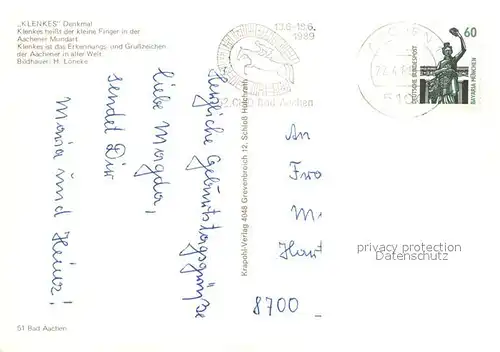 „KLENKES" Denkmal
Klenkes heißt der kleine Finger in der
Aachener Mundart.
Klenkes ist das Erkennungs- und Grußzeichen
der Aachener in aller Welt.
Bildhauer: H. Löneke
13.6-18.6.
1989
Bad Aachen
60
DEUTSCHE BUNDESPOST
BAVARIA MÜNCHEN
Herzliche Geburtstagsgrüße
liebe Magda,
sendet Dir
Maria und Heinz!
Krapohl-Verlag 4048 Grevenbroich 12, Schloß Hülchrath
An
8700
privacy protection
Datenschutz
51 Bad Aachen